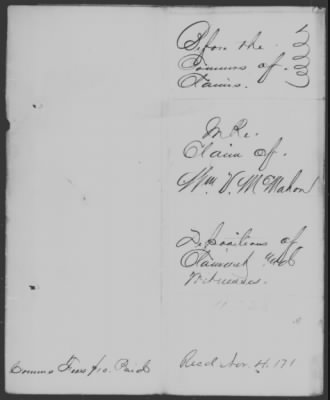 Before the
Commrs of
Claims.
In Re.
Claim of
Wm V. McMahon
Depositions of
Claimant and
Witnesses.
Comms Fees $10. Paid
Recd Nov. 4. 171